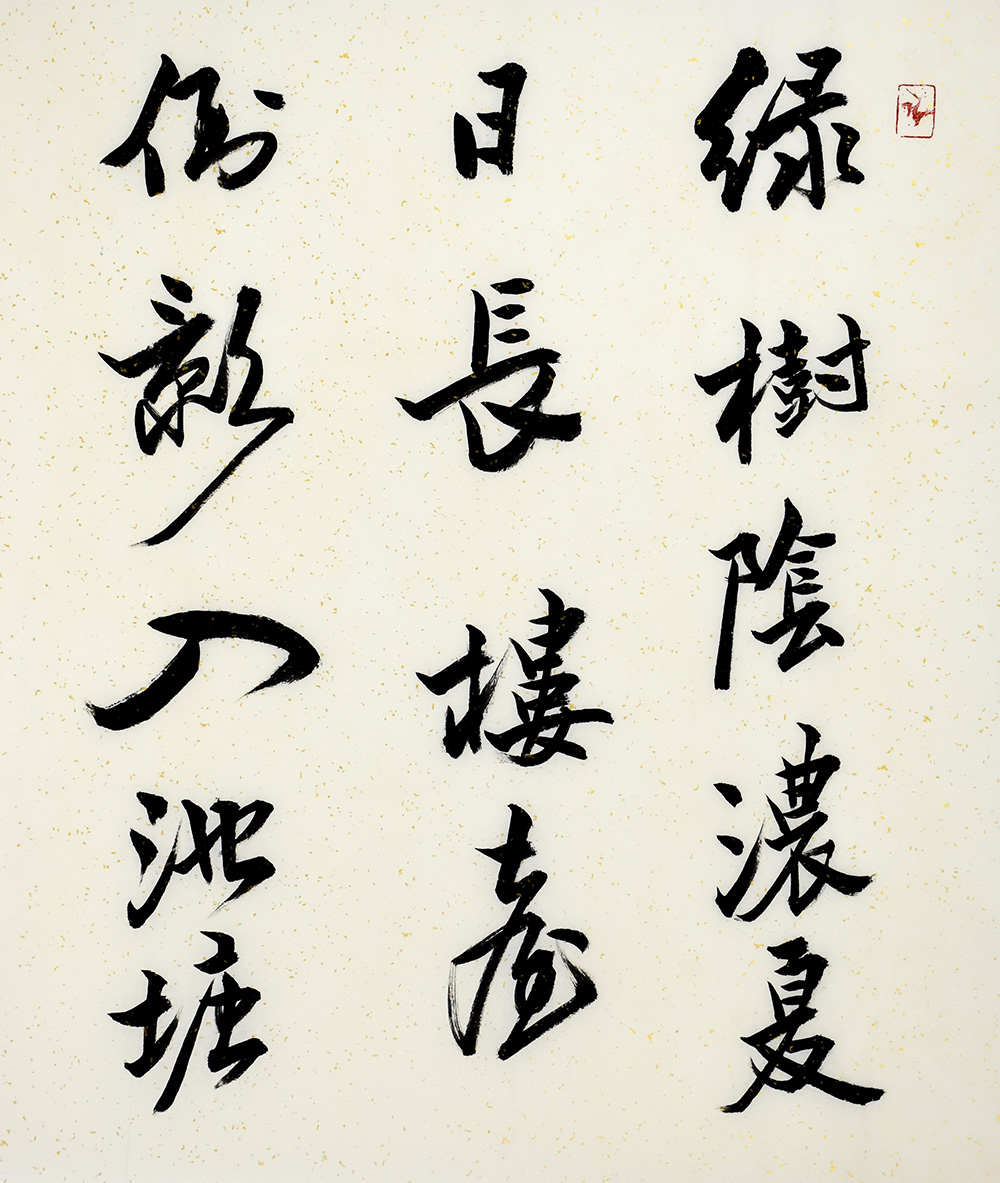 緑樹陰濃夏
日長樓臺
倒影入池塘